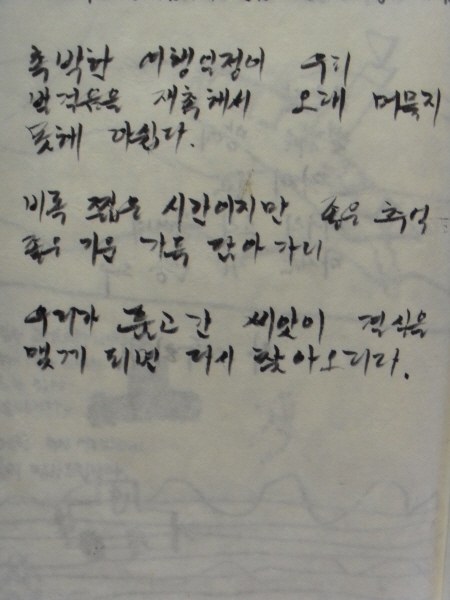 촉박한 여행일정이 우리
발걸음을 재촉해서 오래 머물지
못해 아쉽다.
비록 짧은 시간이지만 좋은 추억
좋은 기운 가득 담아 가리
우리가 뿌리고 간 씨앗이 결실을
맺게 되면 다시 찾아오리라.